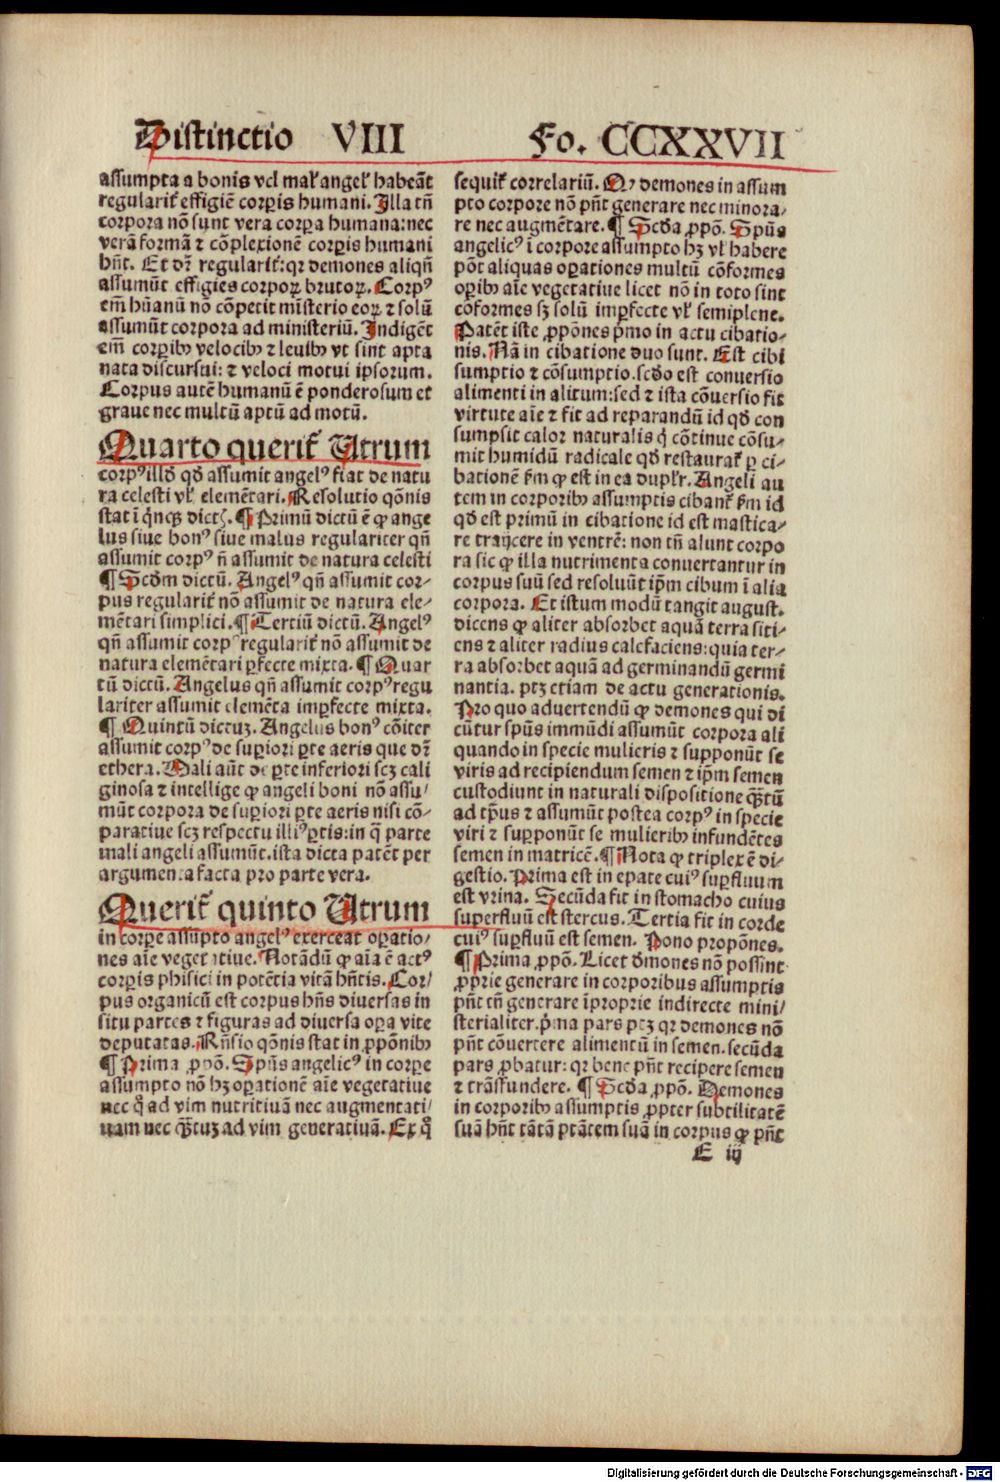 Distinctio VIII Fo. CCXXVII
assumpta a bonis vel mal' angel' habeāt
regularit̄ effigiē corꝑis humani. Illa tn̄
corpora nō sunt vera corꝑa humana: nec
verā formā ⁊ cōplexionē corꝑis humani
hn̄t. Et dr̄ regularit̄: qꝛ demones aliqn̄
assumūt effigies corpoꝝ brutoꝝ. Corpꝰ
em̄ hūanū nō cōpetit mīsterio eoꝝ ⁊ solū
assumūt corpora ad ministeriū. Indigēt
em̄ corꝑibꝰ velocibꝰ ⁊ leuibꝰ vt sint apta
nata discursui: ⁊ veloci motui ipsorum.
Corpus autē humanū ē ponderosum et
graue nec multū aptū ad motū.
Quarto querit̄ Utrum
corpꝰ illd̄ qd̄ assumit angelꝰ fiat de natu
ra celesti vl' elemētari. Resolutio qōnis
stat ī q̄nqꝫ dict̄. ¶ Primū dictū ē ꝙ ange
lus siue bonꝰ siue malus regulariter qn̄
assumit corpꝰ n̄ assumit de natura celesti
¶ Scd̄m dictū. Angelꝰ qn̄ assumit cor-
pus regularit̄ nō assumit de natura ele-
mētari simplici. ¶ Tertiū dictū. Angelꝰ
qn̄ assumit corpꝰ regularit̄ nō assumit de
natura elemētari ꝑfecte mixta. ¶ Quar
tū dictū. Angelus qn̄ assumit corpꝰ regu
lariter assumit elemēta imꝑfecte mixta.
¶ Quintū dictuꝫ. Angelus bonꝰ cōiter
assumit corpꝰ de suꝑiori ꝑte aeris que dr̄
ethera. Mali aūt de ꝑte inferiori scꝫ cali
ginosa ⁊ intellige ꝙ angeli boni nō assu-
mūt corpora de suꝑiori ꝑte aeris nisi cō-
paratiue scꝫ respectu illiꝰ ꝑtis: in q̄ parte
mali angeli assumūt. ista dicta patēt per
argumenta facta pro parte vera.
Querit̄ quinto Utrum
in corꝑe assūpto angelꝰ exerceat oꝑatio-
nes aīe vegetatiue. Notādū ꝙ aīa ē actꝰ
corꝑis phisici in potētia vitā hn̄tis. Cor-
pus organicū est corpus hn̄s diuersas in
situ partes ⁊ figuras ad diuersa oꝑa vite
deputatas. Rn̄sio qōnis stat in ꝓpōnibꝰ
¶ Prima ꝓpō. Spūs angelicꝰ in corꝑe
assumpto nō hꝫ oꝑationē aīe vegetatiue
nec q̊ ad vim nutritiuā nec augmentati-
uam nec qꝫtuꝫ ad vim generatiuā. Ex q̊
sequit̄ correlariū. Qꝙ demones in assum
pto corpore nō pn̄t generare nec minora-
re nec augmētare. ¶ Scd̄a ꝓpō. Spūs
angelicꝰ ī corpore assumpto hꝫ vl' habere
pōt aliquas oꝑationes multū cōformes
oꝑibꝰ aīe vegetatiue licet nō in toto sint
cōformes sꝫ solū imꝑfecte vl' semiplene.
Patēt iste ꝓpōnes pͥmo in actu cibatio-
nis. Nā in cibatione duo sunt. Est cibi
sumptio ⁊ cōsumptio. scd̄o est conuersio
alimenti in alitum: sed ⁊ ista cōuersio fit
virtute aīe ⁊ fit ad reparandū id qd̄ con
sumpsit calor naturalis q̄ cōtinue cōsu-
mit humidū radicale qd̄ restaurat̄ ꝑ ci-
bationē ẜm ꝙ est in ea dupl'r. Angeli au
tem in corꝑibꝰ assumptis cibant̄ ẜm id
qd̄ est primū in cibatione id est mastica-
re traijcere in ventrē: non tn̄ alunt corpo
ra sic ꝙ illa nutrimenta conuertantur in
corpus suū sed resoluūt ip̄m cibum ī alia
corpora. Et istum modū tangit august.
dicens ꝙ aliter absorbet aquā terra siti-
ens ⁊ aliter radius calefaciens: quia ter-
ra absorbet aquā ad germinandū germi
nantia. ptꝫ etiam de actu generationis.
Pro quo aduertendū ꝙ demones qui di
cūtur spūs immūdi assumūt corpora ali
quando in specie mulieris ⁊ supponūt se
viris ad recipiendum semen ⁊ ip̄m semen
custodiunt in naturali dispositione qꝫtū
ad tp̄us ⁊ assumūt postea corpꝰ in specie
viri ⁊ supponūt se mulieribꝰ infundētes
semen in matricē. ¶ Nota ꝙ triplex ē di-
gestio. Prima est in epate cuiꝰ suꝑfluum
est vrina. Secūda fit in stomacho cuius
superfluū est stercus. Tertia fit in corde
cuiꝰ suꝑfluū est semen. Pono propōnes.
¶ Prima ꝓpō. Licet d̄mones nō possint
ꝓprie generare in corporibus assumptis
pn̄t tn̄ generare īproprie indirecte mini-
sterialiter. pͥma pars ptꝫ qꝛ demones nō
pn̄t cōuertere alimentū in semen. secūda
pars ꝓbatur: qꝛ bene pn̄t recipere semen
⁊ trāsfundere. ¶ Scd̄a ꝓpō. Demones
in corporibꝰ assumptis ꝓpter subtilitatē
suā hn̄t tātā ptātem suā in corpus ꝙ pn̄t
E iij
Digitalisierung gefördert durch die Deutsche Forschungsgemeinschaft - DFG